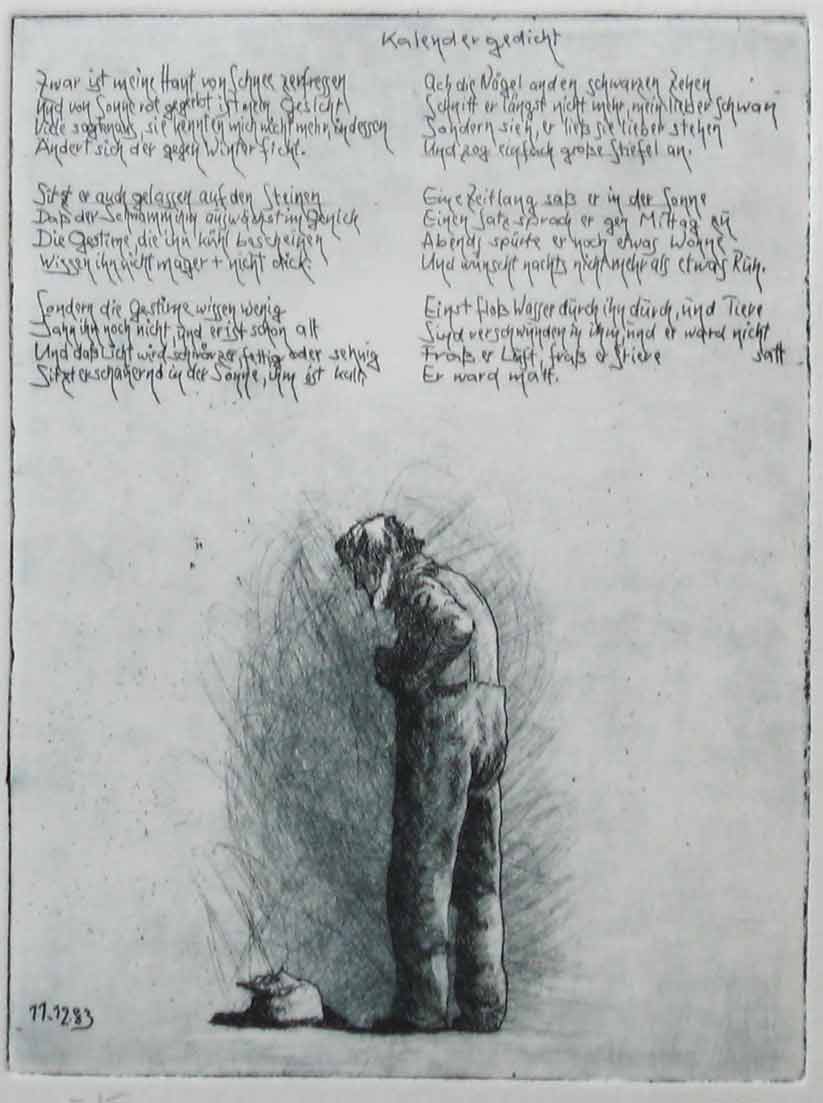 Kalendergedicht
Zwar ist meine Haut von Schnee zerfressen
Und von Sonne rot gegerbt ist mein Gesicht
Viele sagten aus, sie kennten mich nicht mehr, indessen
Ändert sich der gegen Winter ficht.
Sitzt er auch gelassen auf den Steinen
Daß der Schwamm ihm auswächst im Genick
Die Gestirne, die ihn kühl bescheinen
Wissen ihn nicht mager + nicht dick.
Sondern die Gestirne wissen wenig
Sahn ihn noch nicht, und er ist schon alt
Und das Licht wird schwärzer, fettig oder sehnig
Sitzt er schauernd in der Sonne, ihm ist kalt
Ach die Nägel an den schwarzen Zehen
Schnitt er längst nicht mehr, mein lieber Schwan
Sondern sieh, er ließ sie lieber stehen
Und zog einfach große Stiefel an.
Eine Zeitlang saß er in der Sonne
Einen Satz sprach er gen Mittag zu
Abends spürte er noch etwas Wonne
Und wünscht nachts nicht mehr als etwas Ruh.
Einst floß Wasser durch ihn durch, und Tiere
Sind verschwunden in ihm, und er ward nicht
satt
Fraß er Luft, fraß er Stiere
Er ward matt.
11.12.83